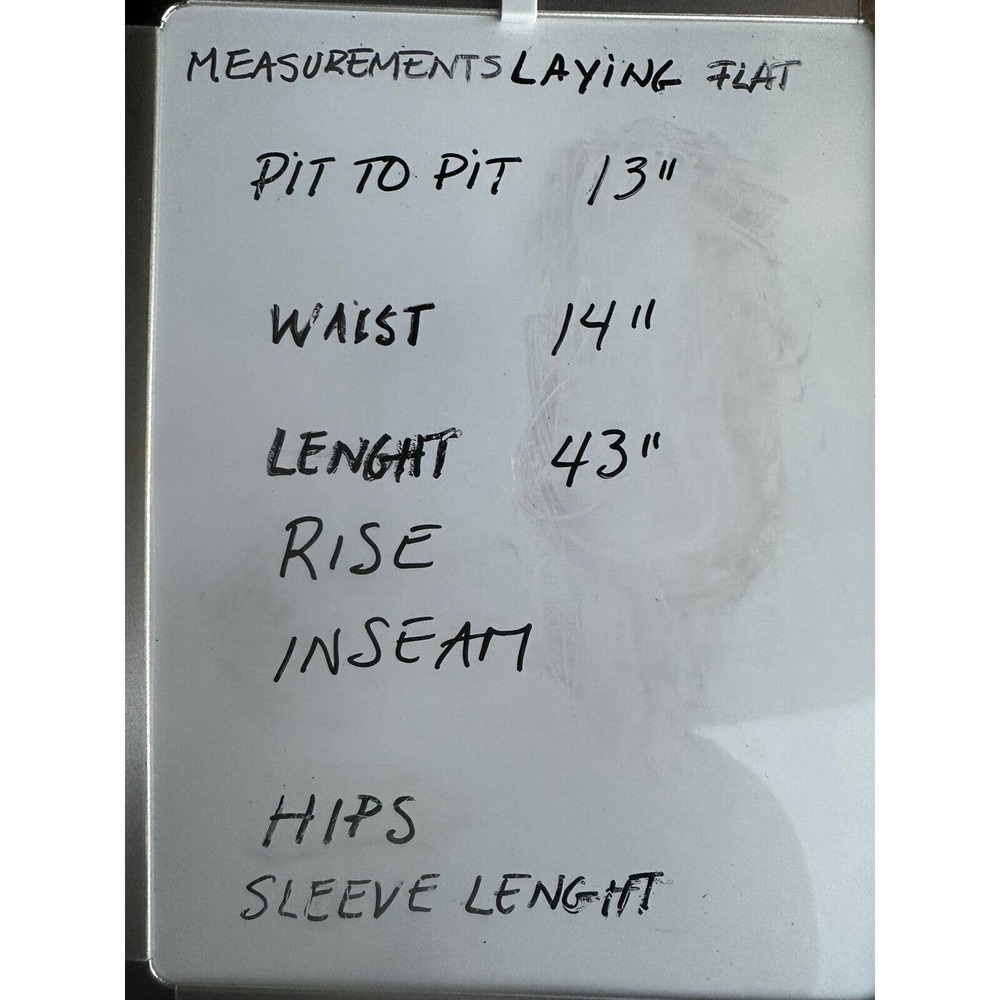 MEASUREMENTS LAYiNG FLAT
PiT TO PiT 13"
WAIST 14"
LENGHT 43"
RISE
INSEAM
HIPS
SLEEVE LENGHT